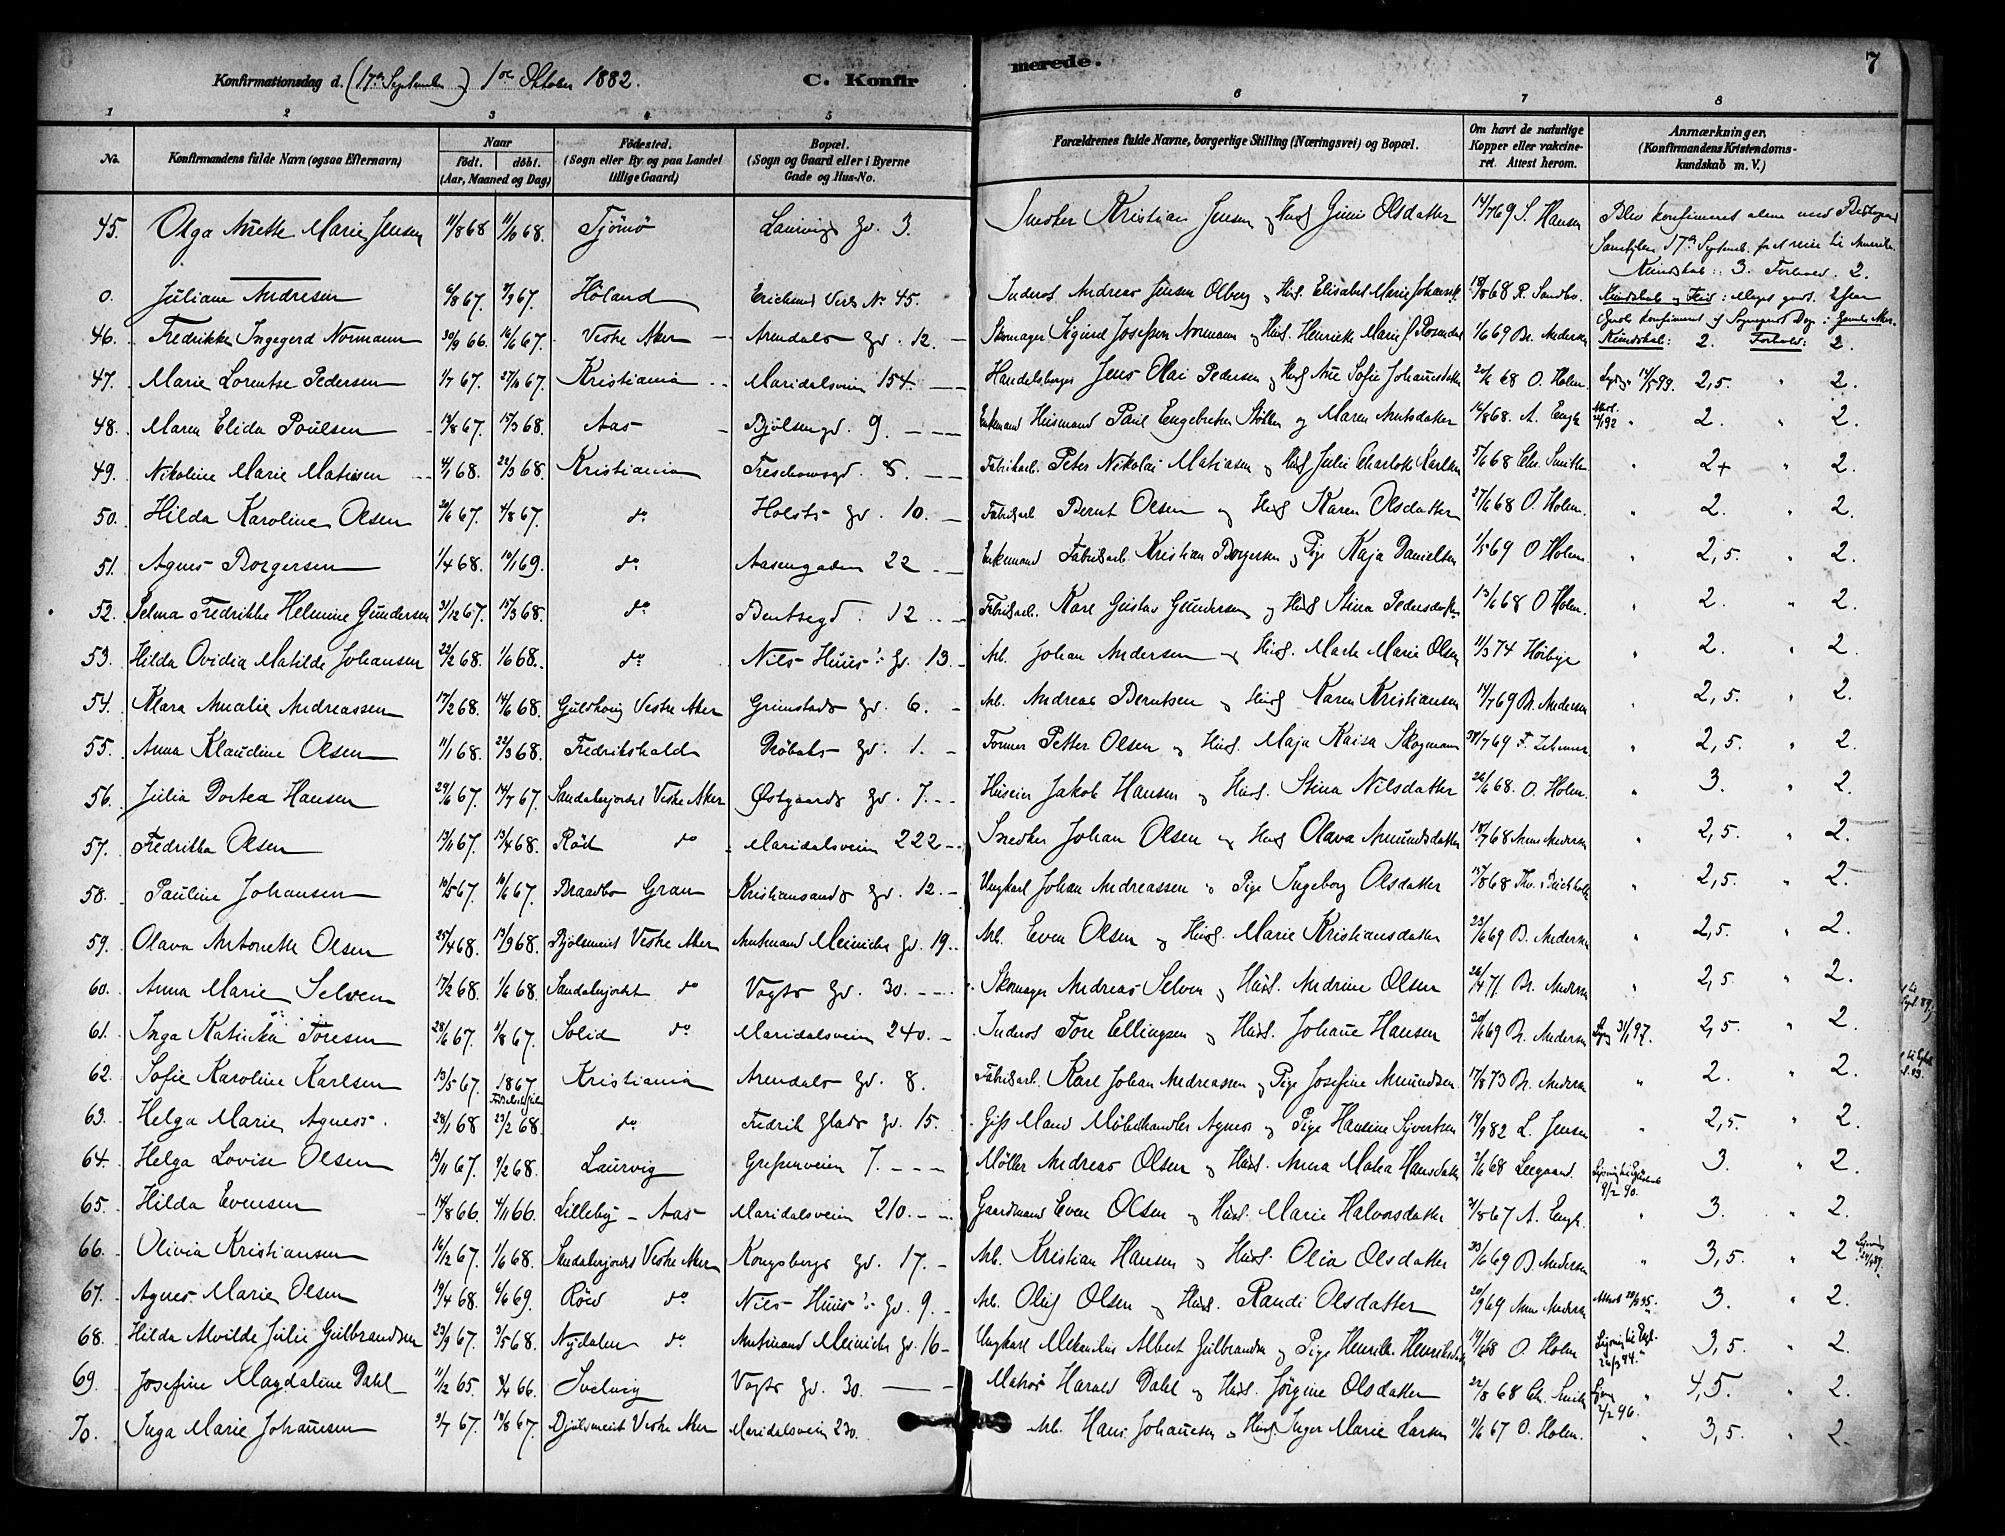 Konfirmationsdag d. (17de September) 1ste Oktober 1882. C. Konfirmerede. 7
1 2 3 4 5 6 7 8
No. Konfirmandens fulde Navn (ogsaa Efternavn) Naar født. døbt. (Aar, Maaned og Dag) Fødested. (Sogn eller By og paa Landet tillige Gaard) Bopæl. (Sogn og Gaard eller i Byerne Gade og Hus-No. Forældrenes fulde Navne, borgerlige Stilling (Næringsvei) og Bopæl. Om havt de naturlige Kopper eller vakcineret. Attest herom. Anmærkninger, (Konfirmandens Kristendomskundskab m. V.)
45. Olga Anette Marie Jensen 11/8 68 11/10 68. Tjömö Laurvigs Gd. 3. Smeker Kristian Jensen og Hust. Olsdatter 14/7 69 S. Hansen Blev konfirmeret alene med
17de Septemb. for at reise til Amerika.
Kundskab: 3. Forhold. 2.
0. Juliane Andresen 6/8 67. 67. Höland Erichsens Verks No 45. Inderst Andreas Jensen Olberg og Hust. Elisabet Marie 68 R. Sandbo. Kundskab og Flid: Meget godt.
46. Fredrikke Ingegerd Normann 30/9 66. 16/6 67. Vestre Aker Arendals Gd. 12. Skomager Sigurd Josefsen Normann og Hust. Henriette Marie 1/6 69 Br. Andersen Kundskab: 2. Forhold: 2.
47. Marie Lorentse Pedersen 1/7 67. 27/10 67. Kristiania Maridalsveien 154. Handelsborger Jens Olai Pedersen og Hust. Ane Sofie Johannesdatter 68 O. Holm. 2,5. " 2.
48. Maren Elida Poulsen 19/8 67. 15/3 68. Aas Bjølsengd. 9. Enkemand Husmand Paul Engebretsen og Maren Knutsdatter 16/8 68. A. Engh " 2. 2.
49. Nikoline Marie Matisen 4/1 68. 22/3 68. Kristiania Treschowsgd. 8. Fabrikarb. Peter Nikolai Matiasen og Hust. Julie Charlotte Karlsen 5/6 68 Chr. Smith. " 2+ " 2.
50. Hilda Karoline Olsen 20/6 67. 4/8 67. do Holsts Gd. 10. Fabrikarb. Bernt Olsen og Hust. Karen Olsdatter 27/6 68 O. Holm. " 2. " 2.
51. Agnes Borgersen 1/4 68. 10/1 69. do Aasengaden 22 Enkemand Fabrikarb. Kristian Borgersen og Pige Kaja Danielsen 1/5 69 O Holm " 2,5. " 2.
52. Selma Fredrikke Helmine Gundersen 31/12 67. 15/3 68. do Bentsegd. 12 Fabrikarb. Karl Gustav Gundersen og Hust. Stina Pedersdatter 13/6 68 O Holm. " 2. " 2.
53. Hilda Ovidia Matilde Johansen 22/2 68. 1/6 68. do Nils Huus's Gd. 13. Arb. Johan Andersen og Hust. Marte Marie Olsen 11/3 74 Höibye " 2. " 2.
54. Klara Amalie Andreassen 17/2 68. 14/6 68. Guldhaug Vestre Aker Grimstads Gd. 6. Arb. Andreas Berntsen og Hust. Karen Kristiansen 14/7 69 Br. Andersen " 2,5. " 2.
55. Anna Klaudine Olsen 11/1 68. 22/3 68. Fredrikshald Dröbaks Gd. 1. Former Petter Olsen og Hust. Maja Kaisa Skogmann 69 F. " 2,5. " 2.
56. Julia Dortea Hansen 29/6 67. 14/7 67. Sandakerjordet Vestre Aker Østgaards Gd. 7. Huseier Jakob Hansen og Hust. Stina Nilsdatter 26/6 68. O. Holm. " 3. " 2.
57. Fredrikka Olsen 13/11 67. 13/4 68. Röd do Maridalsveien 222 Snedker Johan Olsen og Hust. Olava Amundsdatter 18/7 68 Anne Andersen " 2,5. " 2.
58. Pauline Johansen 10/5 67. 10/6 67. Braadbo Gran Kristiansands Gd. 12. Ungkarl Johan Andreassen og Pige Ingeborg Olsdatter 15/8 68 Thv. " 2,5. " 2.
59. Olava Antonette Olsen 25/4 68. 13/9 68. Bjølseneiet Vestre Aker Amtmand Meinichs Gd. 19. Arb. Even Olsen og Hust. Marie Kristiansdatter 23/6 69 B. Andersen " 2,5. " 2.
60. Anna Marie Selven 17/2 68. 1/6 68. Sandakerjordet do Vogts Gd. 30. Skomager Andreas Selven og Hust. Andrine Olsen 26/4 71 Br. Andersen " 2,5 " 2.
61. Inga Katinka Toresen 28/6 67. 67. Solid do Maridalsveien 240. Inderst Tore Ellingsen og Hust. Johanne Hansen 69 Br. Andersen 31/1 97. 2,5. " 2.
62. Sofie Karoline Karlsen 13/5 67. 1867. Kristiania Arendals Gd. 8. Fabrikarb. Karl Johan Andreassen og Pige Josefine Amundsen 17/8 73 Br. Andersen " 2. " 2.
63. Helga Marie Agness. 28/1 68 23/2 68. do Fredrik Glads Gd. 15. Gift Mand Möbelhandler Agness og Pige Hansine Syvertsen 19/9 82 L. Jensen " 2,5. " 2.
64. Helga Lovise Olsen 13/11 67. 9/2 68. Laurvig Grefsenveien 7. Møller Andreas Olsen og Hust. Anna Matea Hansdatter 68 Leegaard. 9/2 90. 3. " 2.
65. Hilda Evensen 14/8 66. 4/11 66. Lilleby – Aas Maridalsveien 210. Gaardmand Even Olsen og Hust. Marie Halvorsdatter 67 A. Engh. " 3. " 2.
66. Olivia Kristiansen 16/12 67. 1/6 68. Sandakerjordet Vestre Aker Kongsbergs Gd. 17. Arb. Kristian Hansen og Hust. Olia Olsdatter 23/6 69 B Andersen " 3,5 " 2
67. Agnes Marie Olsen 19/4 68. 6/6 69. Röd do Nils Huus's Gd. 9. Arb. Oluf Olsen og Hust. Randi Olsdatter 20/9 69 Anne Andersen 3. " 2.
68. Hilda Alvilde Julie Gulbrandsen 23/9 67. 3/5 68. Nydalen do Amtmand Meinichs Gd. 16 Ungkarl Albert Gulbrandsen og Pige Henriette Henriksdatter 19/6 68 O. Holm 26/3 94. 3,5 " 2.
69. Josefine Magdaline Dahl 11/12 65. 66. Svelvig Vogts Gd. 30. Matros Harald Dahl og Hust. Jørgine Olsdatter 22/8 68 Ch. Smith 2/2 96. " 4,5. " 2.
70. Inga Marie Johannesen 3/7 67. 18/8 67. Bjølseneiet Vestre Aker Maridalsveien 230. Arb. Hans Johannesen og Hust. Inger Marie Larsen 11/6 67 O. Holm. " 3,5. " 2.